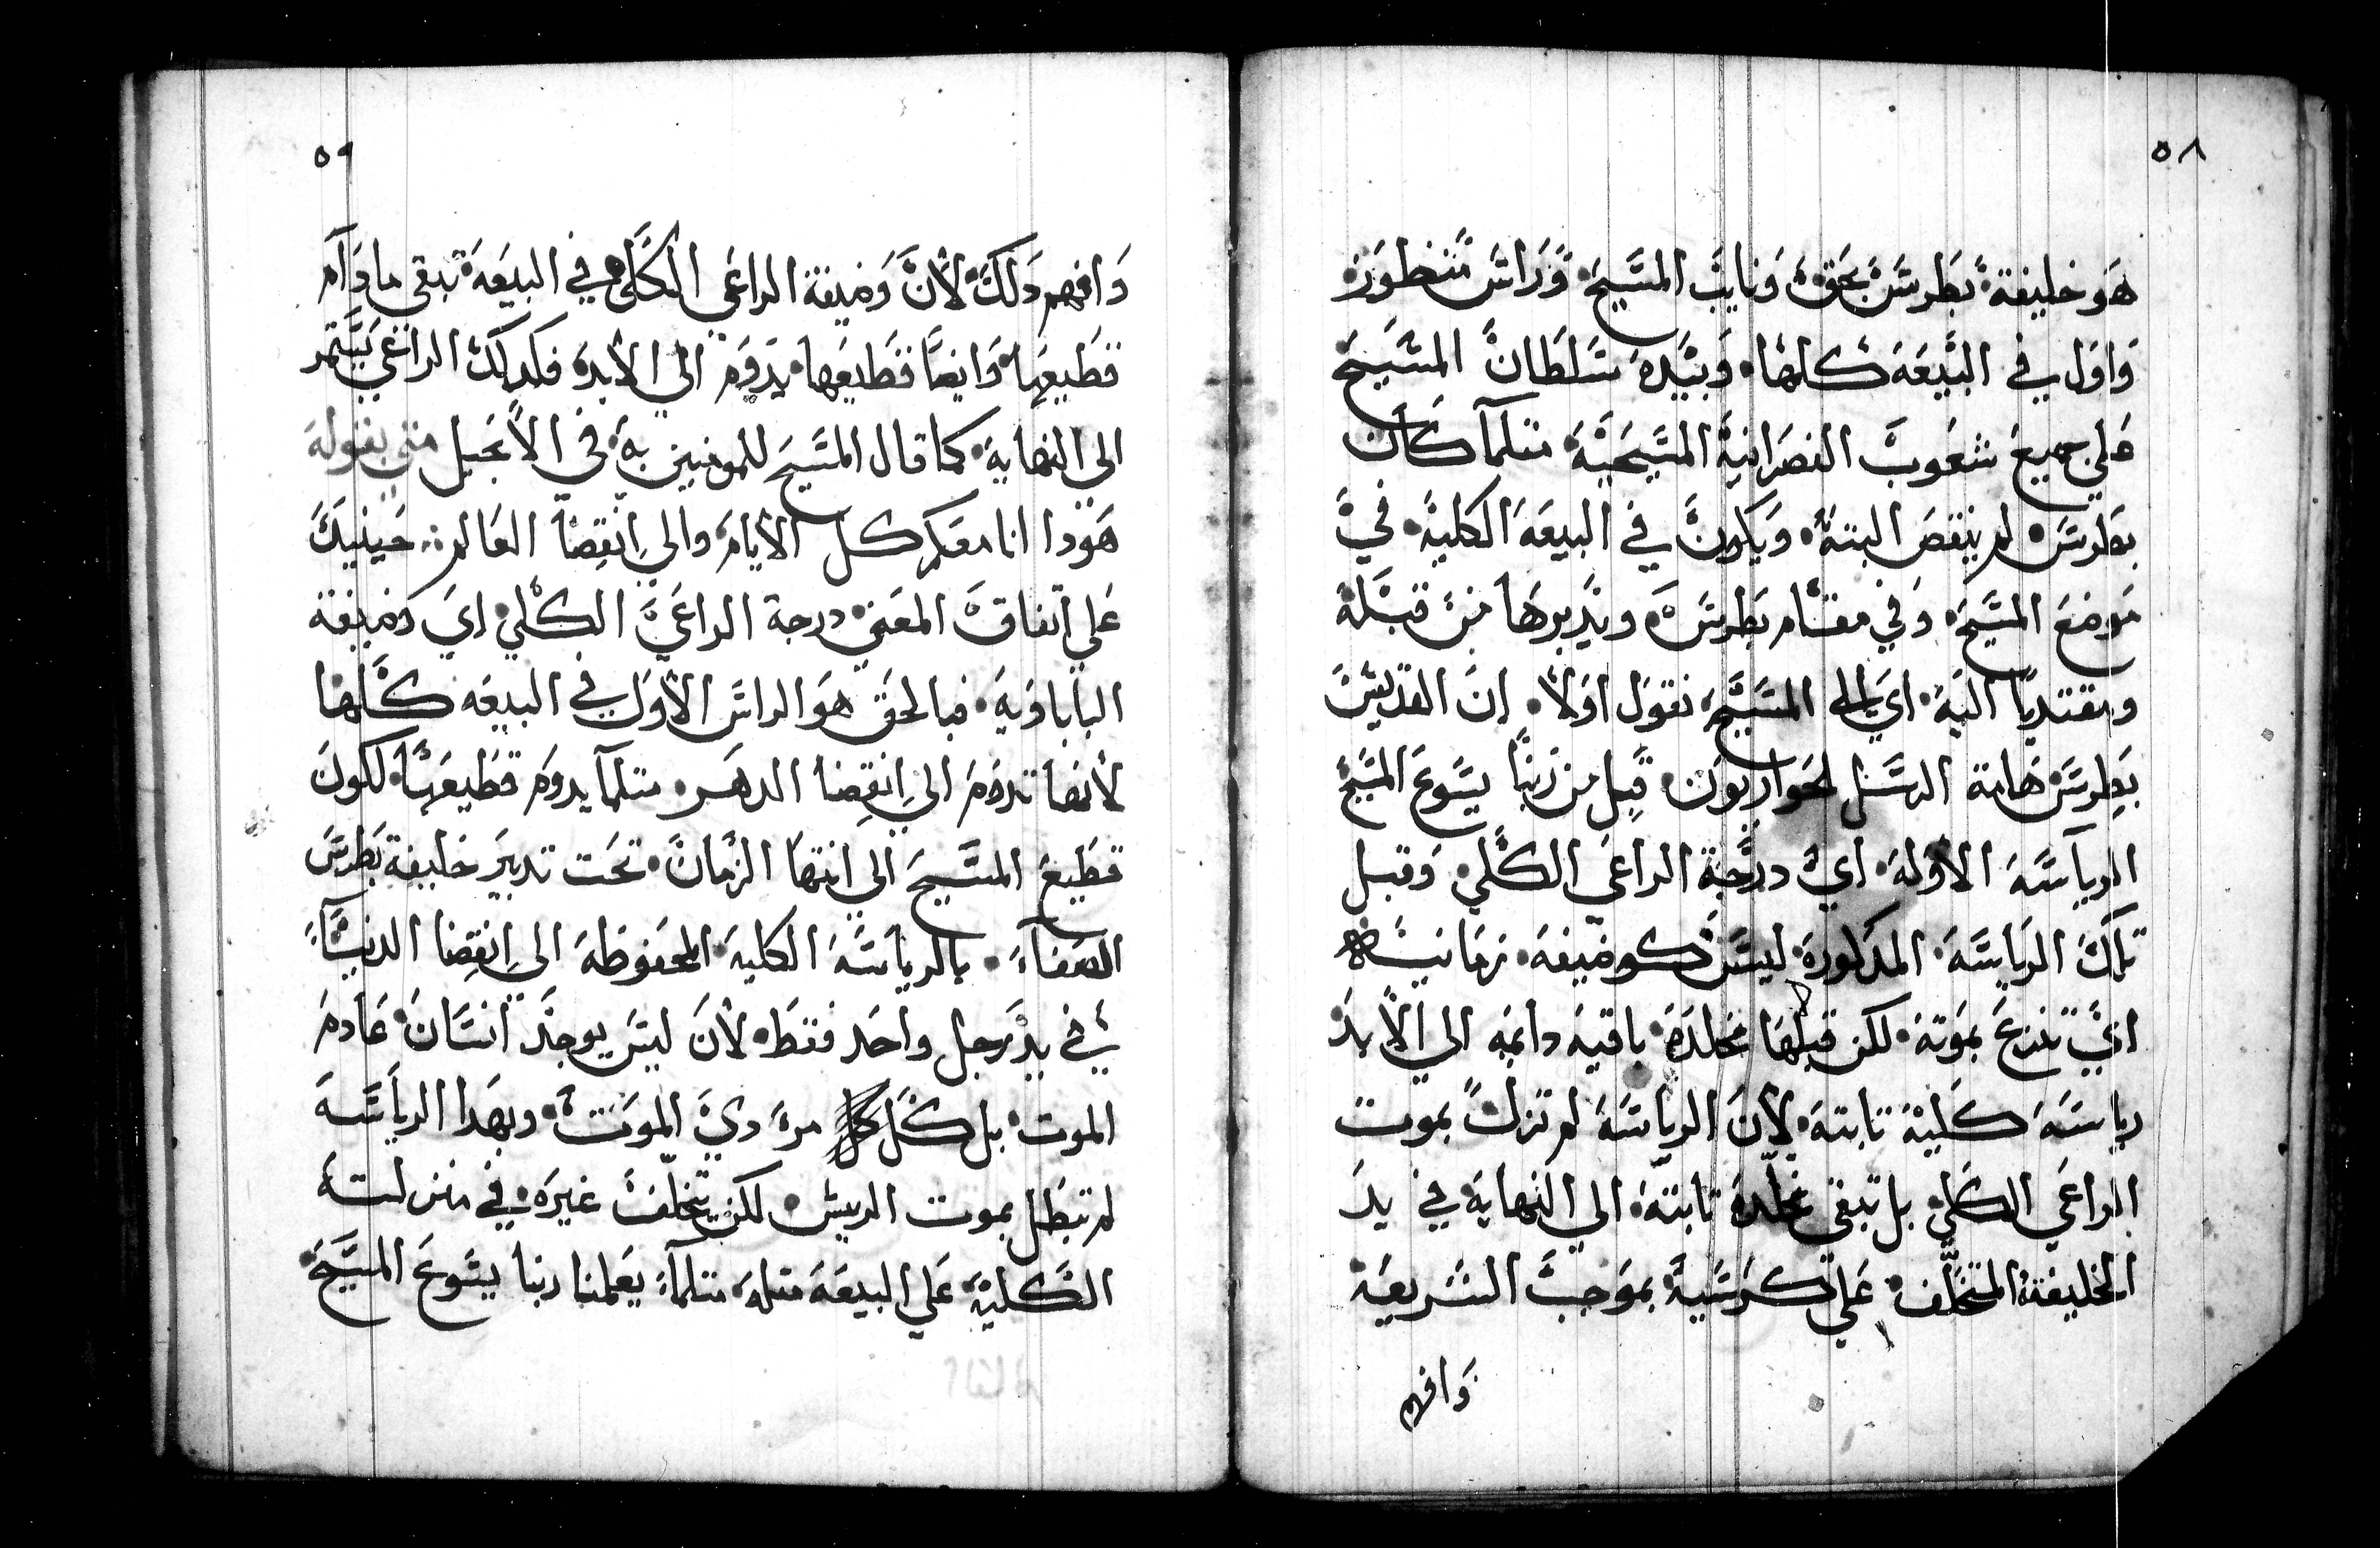 ٥٨
هو خليفة بطرس بحق ونايب المسيح وراس منظور
واول في البيعه كلها وبيده سلطان المسيح
علي جميع شعوب النصرانية المسيحية متلما كان
بطرس لم ينقص البتة ويكون في البيعه الكلية في
موضع المسيح وفي مقام بطرس ويدبرها من قبله
ومقتديا اليه اي الى المسيح نقول اولا ان القديس
بطرس هامة الرسل الحواريون قبل من ربنا يسوع المسيح
الرياسه الاوله اي درجة الراعي الكلي وقبل
تلك الرياسه المدكورة ليس كوضيفه زمانيه
اي تنزع بموته لكن قبلها مخلده باقيه دايمه الي الابد
رياسه كلية تابته لان الرياسه لم تزل بموت
الراعي الكلي بل تبقى مخلدة تابتة الي النهاية في يد
الخليفة المتخلف علي كرسية بموجب الشريعة
وافهم
٥٩
وافهم دلك لان وضيفة الراعي الكلي في البيعه تبقى ما دام
قطيعها وايضا قطيعها يدوم الي الابد فكدلك الراعي يستمر
الى النهاية كما قال المسيح للمومنين به في الانجيل متي بقوله
هودا انا معكم كل الايام والي انقضا العالم حينيد
علي اتفاق المعني درجة الراعي الكلي اي وضيفة
الباباوية فبالحق هو الراس الاول في البيعه كلها
لانها تدوم الي انقضا الدهر متلما يدوم قطيعها لكون
قطيع المسيح الي انتها الزمان تحت تدبير خليفة بطرس
الصفاء بالرياسه الكلية المحفوظة الى انقضا الدنيا
في يد رجل واحد فقط لان ليس يوجد انسان عادم
الموت بل كل مرء دي الموت وبهدا الرياسه
لم تبطل بموت الرييس لكن يتخلف غيره في منزلته
الكلية علي البيعه متله متلما يعلمنا ربنا يسوع المسيح